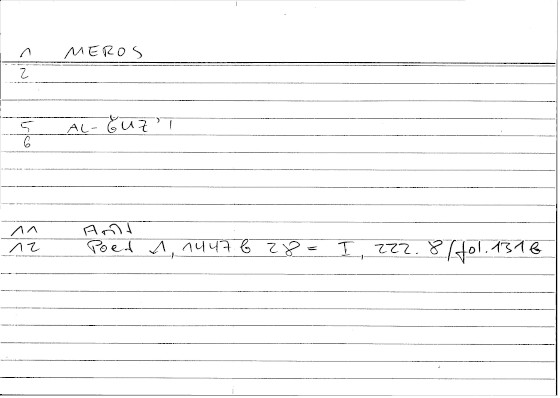 1 MEROS
2
5 AL-ǦUZ'I
6
11 Arist
12 Poet 1, 1447 b 28 = I, 222. 8/fol. 131 b